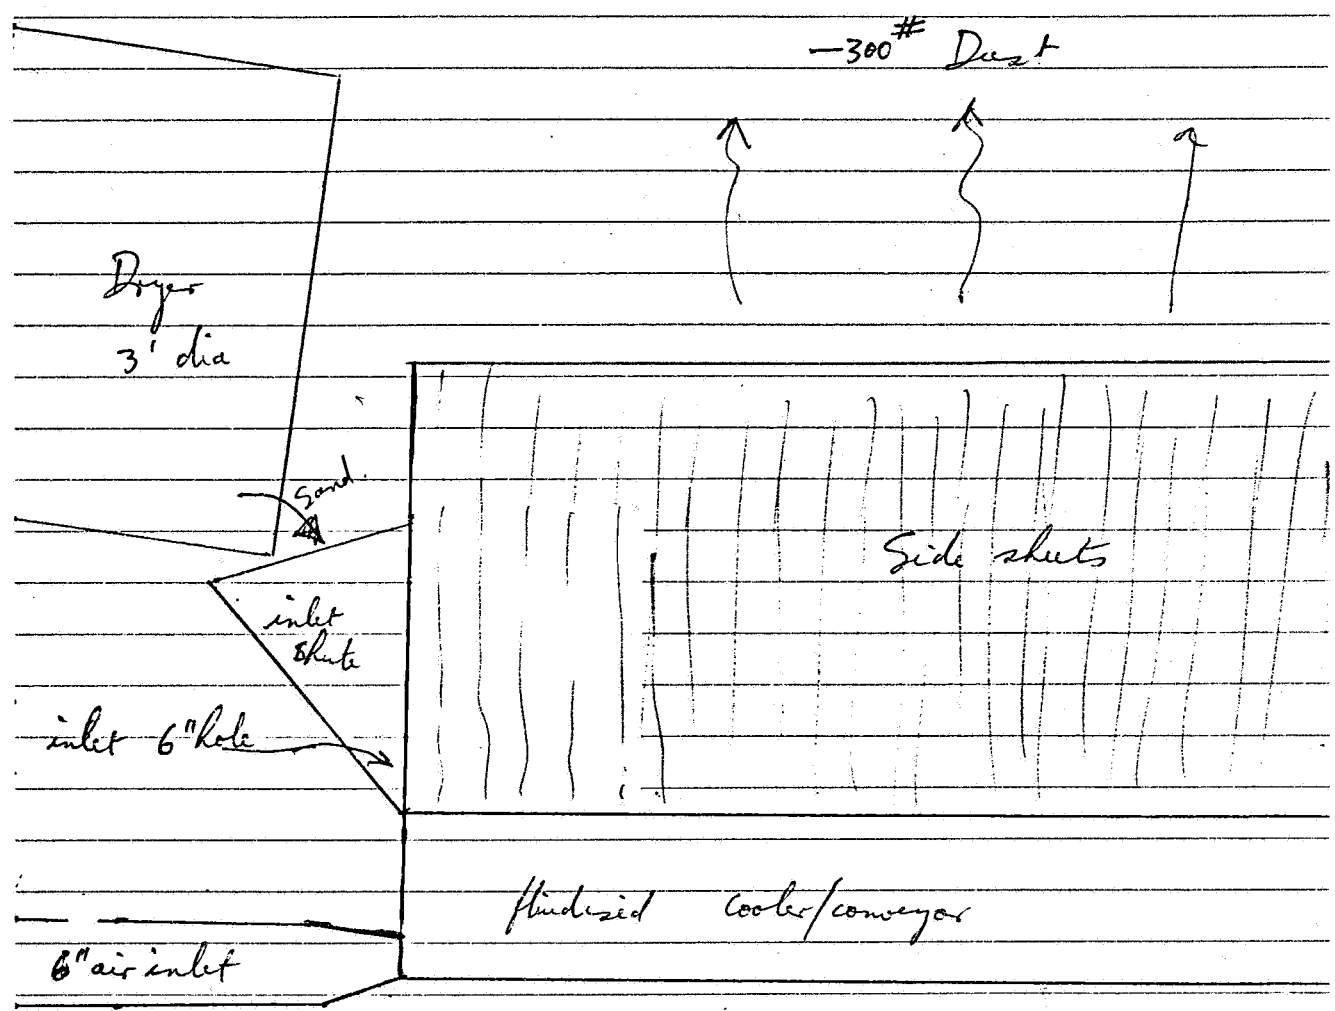 -300# Dust
Dryer
3' dia
Sand.
Side sheets
inlet
shute
inlet 6" hole
fluidized cooler/conveyor
6" air inlet